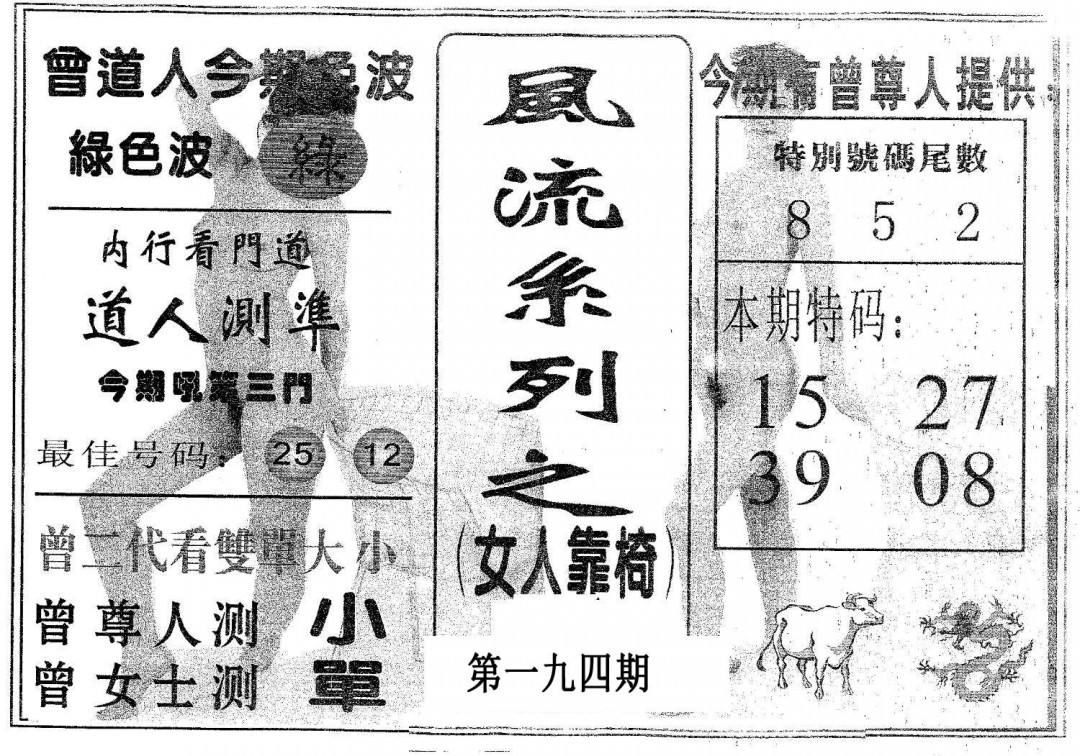 曾道人今期色波
綠色波 綠
内行看門道
道人測準
今期吼第三門
最佳号码: 25 12
曾二代看雙單大小
曾尊人测 小
曾女士测 單
風流系列之
(女人靠椅)
第一九四期
今期有曾尊人提供:
特別號碼尾數
8 5 2
本期特码:
15 27
39 08